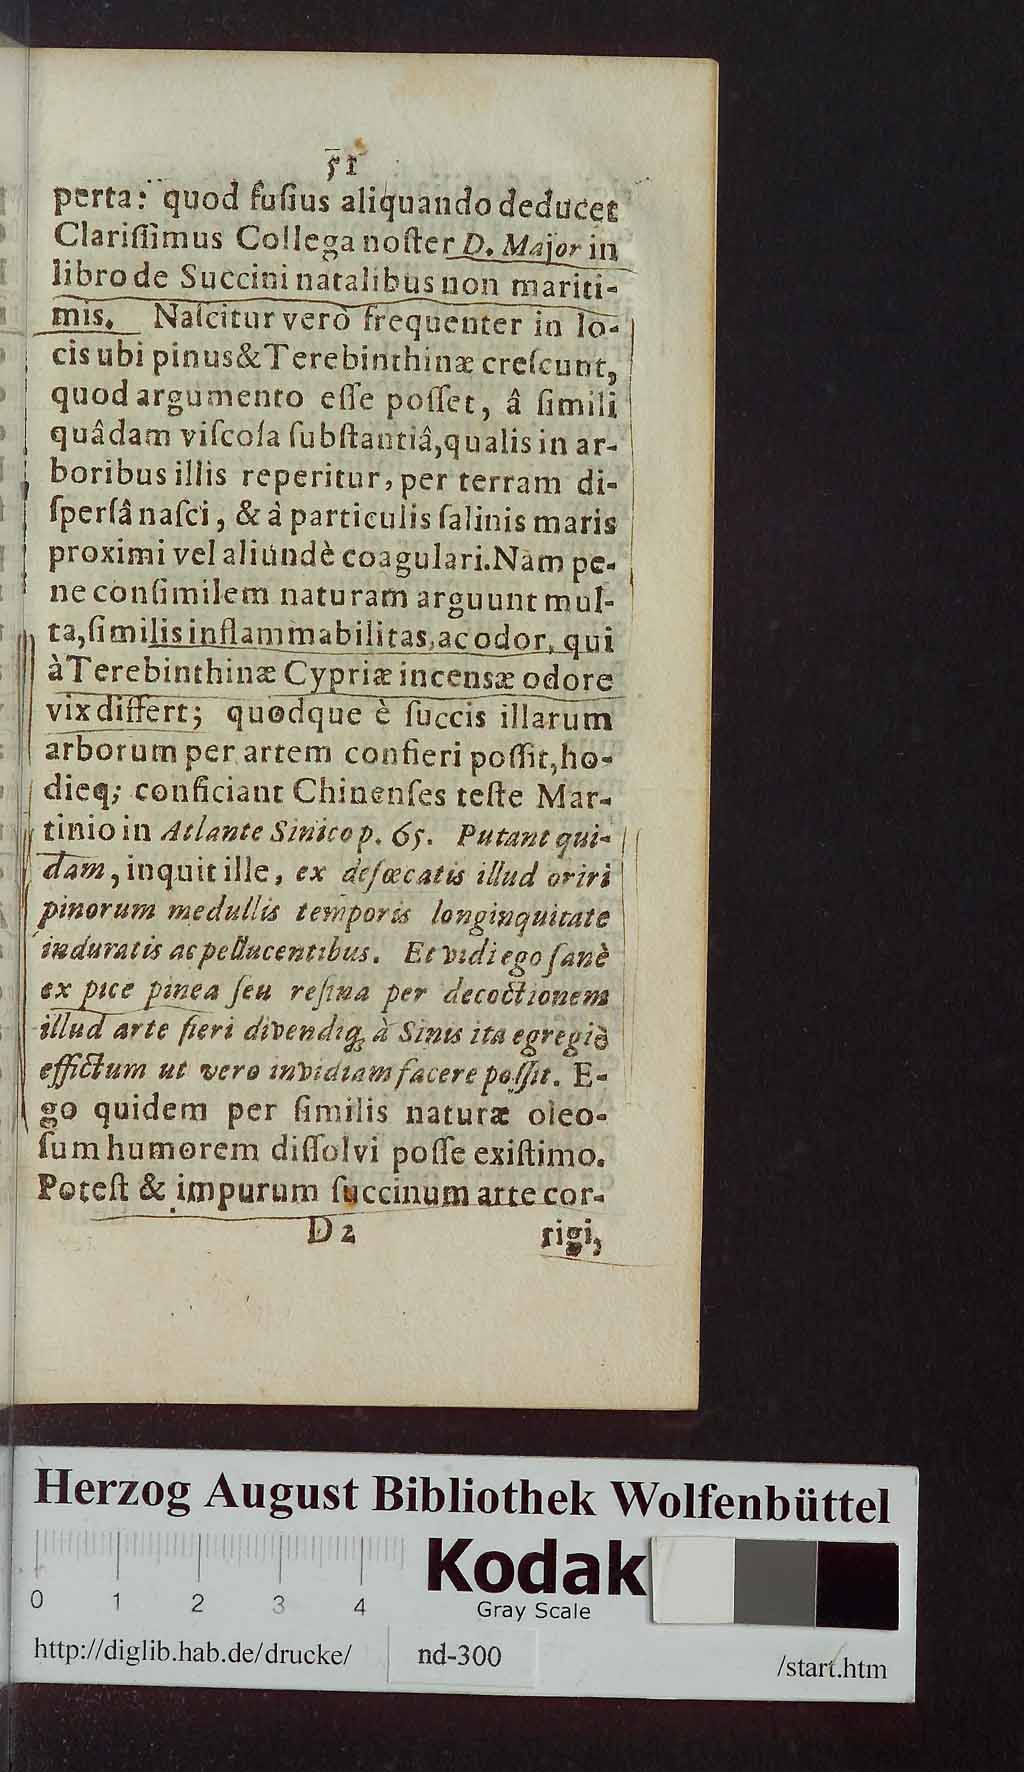 51
perta: quod fuſius aliquando deducet
Clariſſimus Collega noſter D. Major in
libro de Succini natalibus non mariti-
mis. Naſcitur verò frequenter in lo-
cis ubi pinus & Terebinthinæ creſcunt,
quod argumento eſſe poſſet, â ſimili
quâdam viſcoſa ſubſtantiâ, qualis in ar-
boribus illis reperitur, per terram di-
ſperſâ naſci, & à particulis ſalinis maris
proximi vel aliundè coagulari. Nam pe-
ne conſimilem naturam arguunt mul-
ta, ſimilis inflammabilitas, ac odor, qui
à Terebinthinæ Cypriæ incensæ odore
vix differt; quodque è ſuccis illarum
arborum per artem confieri poſſit, ho-
dieq; conficiant Chinenſes teſte Mar-
tinio in Atlante Sinico p. 65. Putant qui-
dam, inquit ille, ex defœcatis illud oriri
pinorum medullis temporis longinquitate
induratis ac pellucentibus. Et vidi ego ſanè
ex pice pinea ſeu reſina per decoctionem
illud arte fieri divendiq; à Sinis ita egregiè
effictum ut vero invidiam facere poſſit. E-
go quidem per ſimilis naturæ oleo-
ſum humorem diſſolvi poſſe exiſtimo.
Poteſt & impurum ſuccinum arte cor-
D 2 rigi,
Herzog August Bibliothek Wolfenbüttel
Kodak
Gray Scale
0 1 2 3 4
http://diglib.hab.de/drucke/ nd-300 /start.htm